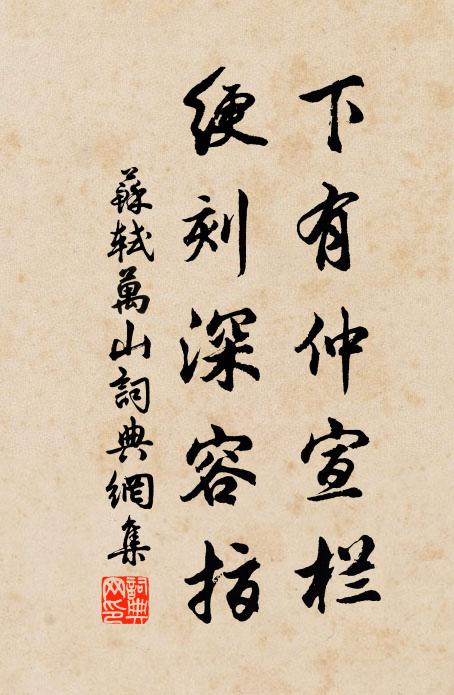 下有仲宣栏
绠刻深容指
蘇軾萬山詞典網集
詞典网印